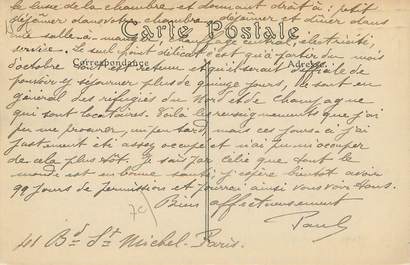 le luxe de la chambre et donnant droit à : petit
déjeuner dans votre chambre, déjeuner et dîner dans
une salle à electricité,
Carte Postale
service. Le seul point délicat c'est qu'à partir du mois
Correspondance
Adresse
d'octobre tout est retenu et qu'il serait difficile de
pouvoir y séjourner plus de quinze jours, ce sont en
général des réfugiés du Nord et de Champagne
qui sont locataires. Voilà les renseignements que j'ai
pu me procurer, un peu tard, mais ces jours-ci j'ai
justement été assez occupé et n'ai pu m'occuper
de cela plus tôt. Je sais par Célie que tout le
monde est en bonne santé, j'espère bientôt avoir
jours de permission et pourrai ainsi vous voir tous.
Bien affectueusement
Paul
41 Bd St Michel - Paris.